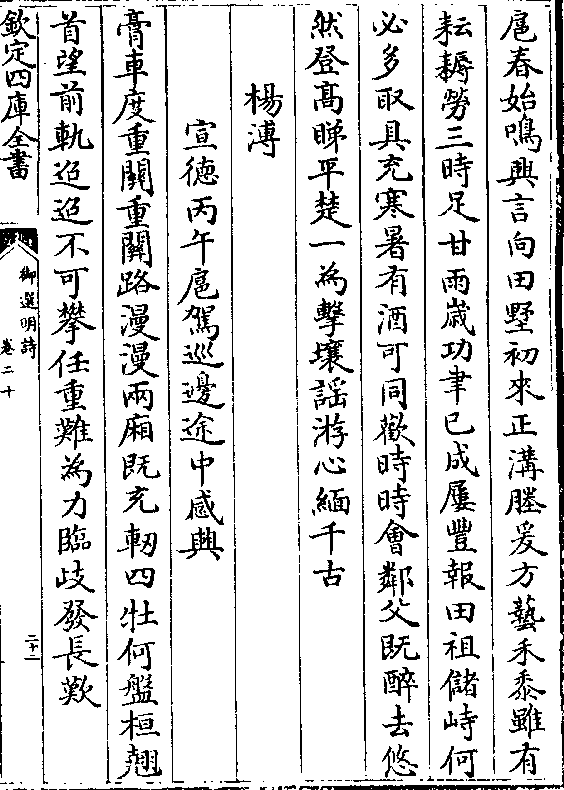 扈春始鳴興言向田墅初來正溝塍爰方藝禾黍雖有
耘耨勞三時足甘雨歲功聿已成屢豐報田祖儲峙何
必多取具充寒暑有酒可同歡時時會鄰父既醉去悠
然登高睇平楚一為擊壤謡游心緬千古
楊溥
宣德丙午扈駕巡邊途中感興
膏車度重關重關路漫漫兩廂既充軔四牡何盤桓翹
首望前軌迢迢不可攀任重難為力臨歧發長歎
欽定四庫全書
御選明詩
卷二十
二十二